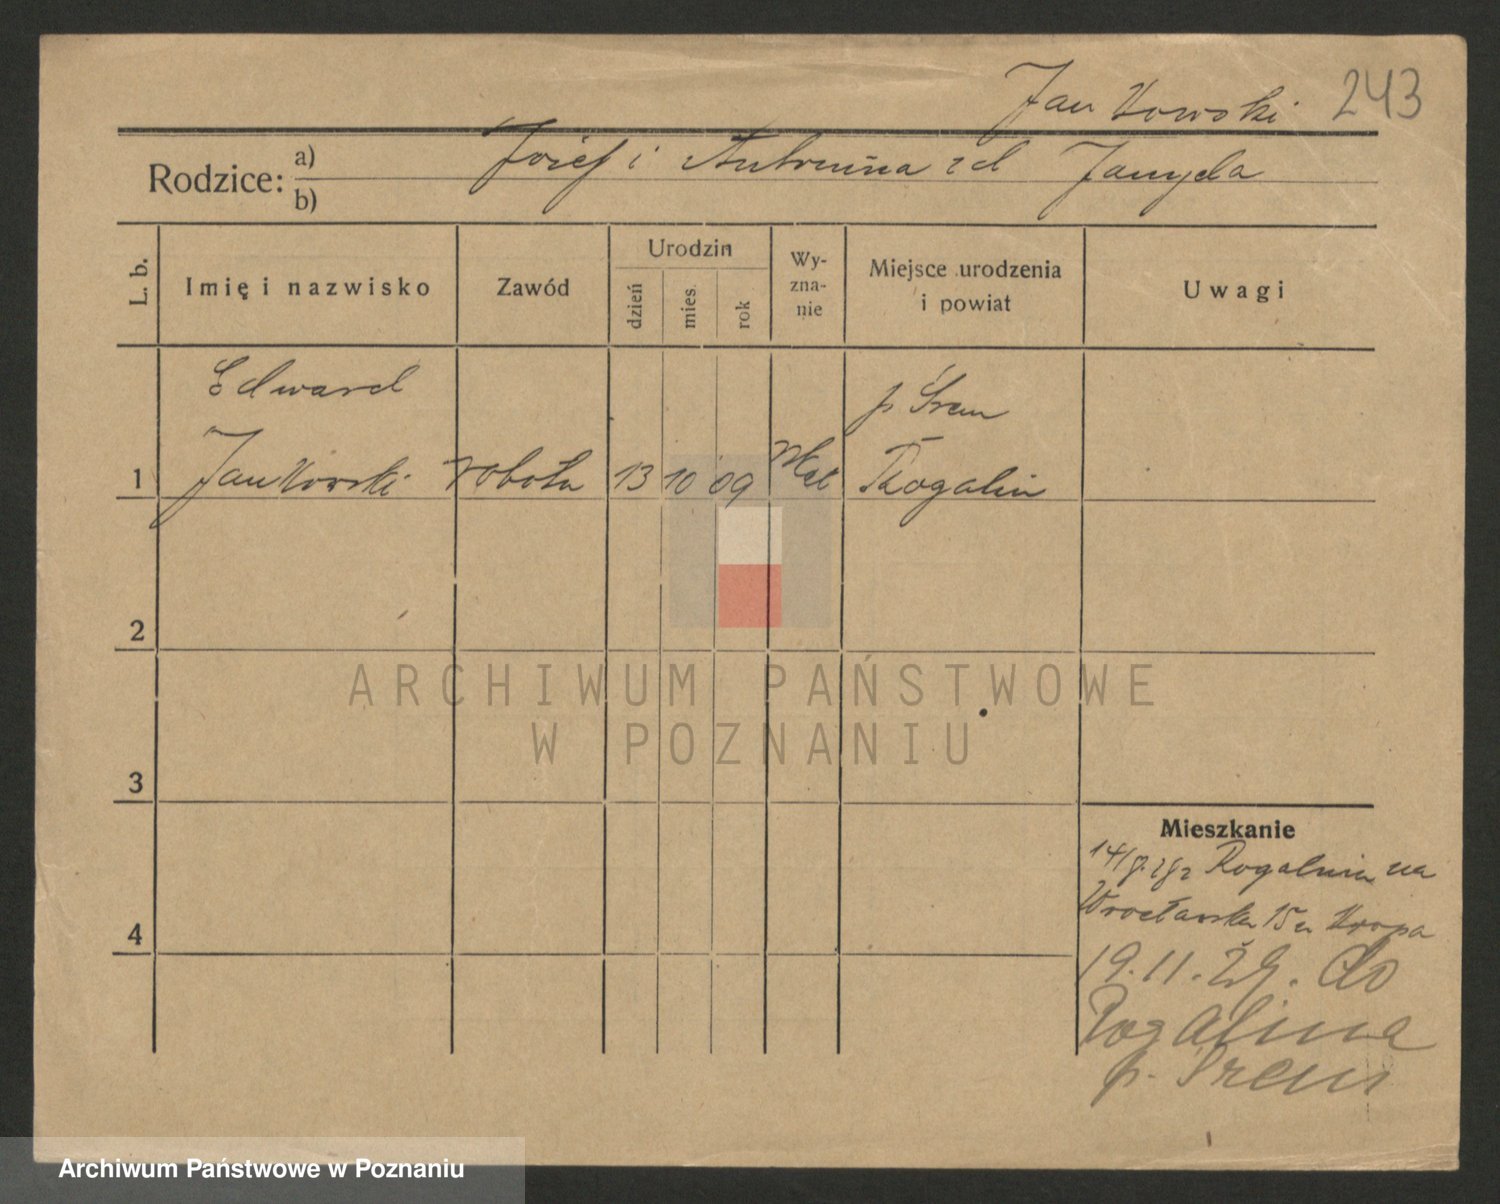 Jankowski 243
Rodzice: a) b)
Józef i Antonina zd Jamyda
L. b.
Imię i nazwisko
Zawód
Urodzin
dzień
mies.
rok
Wy-
zna-
nie
Miejsce urodzenia
i powiat
Uwagi
Edward
p Śrem
1 Jankowski robotn 13 10 09 rkat Rogalin
2
ARCHIWUM PAŃSTWOWE
W POZNANIU
3
Mieszkanie
z Rogalina na
Wrocławska 15 u Kropa
4
19.11.29. do
Rogalina
p. Śrem
Archiwum Państwowe w Poznaniu